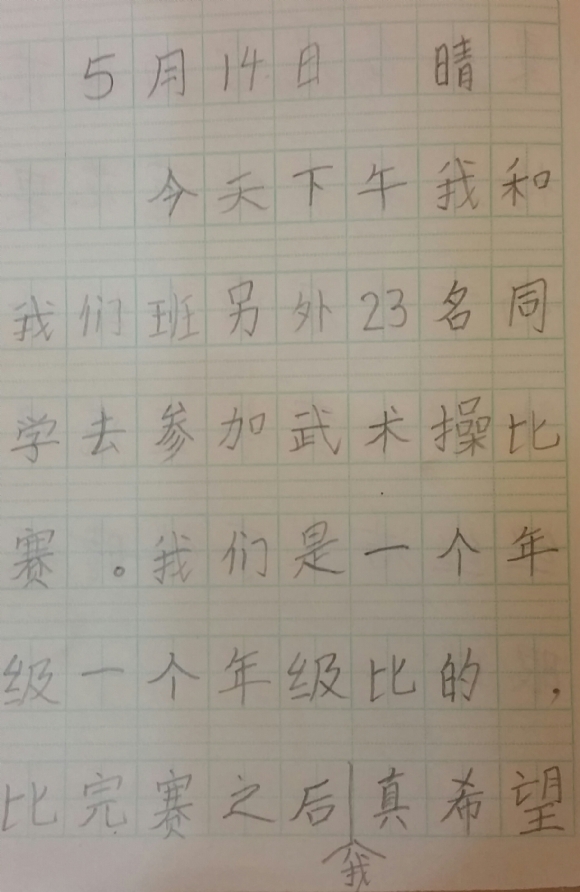 5月14日 晴
今天下午我和
我们班另外23名同
学去参加武术操比
赛。我们是一个年
级一个年级比的，
比完赛之后我真希望